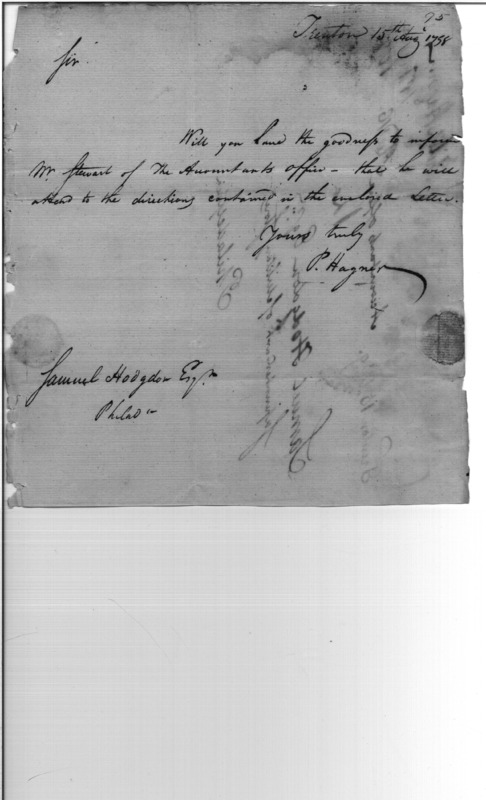 25
Trenton 15th Augt 1798
Sir.
Will you have the goodness to inform
Mr Stewart of the Accountants office - that he will
attend to the directions contained in the enclosed Letter.
Yours truly
P. Hagner
Samuel Hodgdon Esqr
Philada
Samuel Hodgdon
Philadelphia